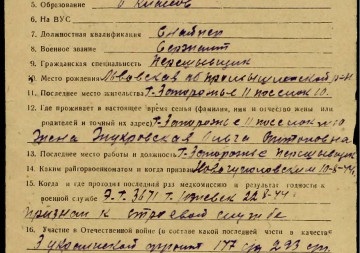 5. Образование
6. На ВУС
7. Должностная квалификация Снайпер
8. Военное звание Сержант
9. Гражданская специальность
10. Место рождения Львовская об
11. Последнее место жительства г. Запорожье 11 поселок 10.
12. Где проживает в настоящее время семья (фамилия, имя и отчество жены или
родителей и точный их адрес) г. Запорожье 11 поселок 10
Жена Ольга Антоновна
13. Последнее место работы и должность г. Запорожье
14. Каким райгорвоенкоматом и когда призван
15. Когда и где проходил последний раз медкомиссию и результат годности к
военной службе Э.Г. 3671 г. Ижевск 22-8-44г.
признан к строевой службе
16. Участие в Отечественной войне (в составе какой последней части в качест
3 украинский фронт